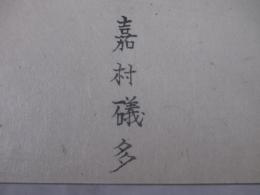 嘉村礒多